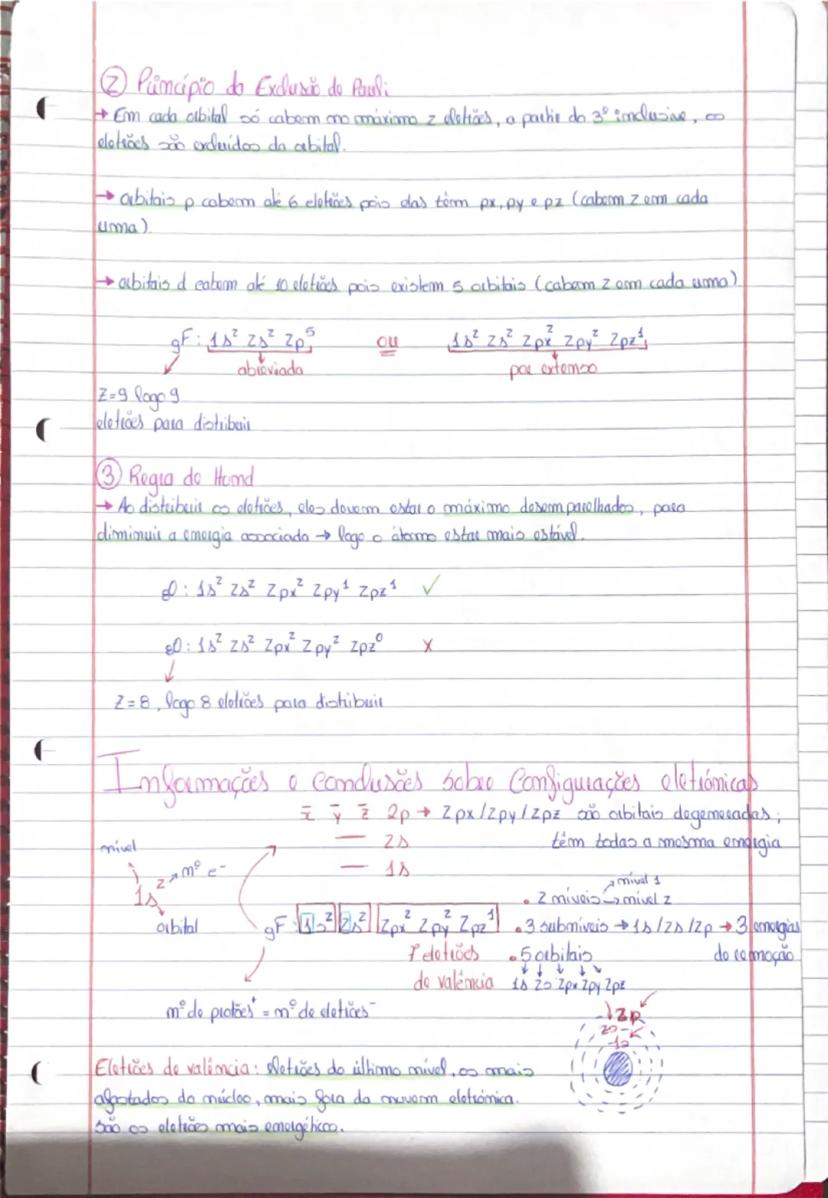 ② Princípio da Exclusão de Pauli
→ Em cada orbital só cabem no máximo 2 eletrões, a partir do 3º inclusive, os
eletrões são excluídos da orbital.
→ orbitais p cabem até 6 eletrões pois elas têm px, py e pz (cabem 2 em cada
uma)
→ orbitais d cabem até 10 eletrões pois existem 5 orbitais (cabem 2 em cada uma)
₉F: 1s² 2s² 2p⁵ ou 1s² 2s² 2px² 2py² 2pz¹
abreviada por extenso
Z=9 logo 9
eletrões para distribuir
③ Regra de Hund
→ Ao distribuir os eletrões, eles devem estar o máximo desemparelhados, para
diminuir a energia associada → logo o átomo estar mais estável.
₈O: 1s² 2s² 2px² 2py¹ 2pz¹ ✓
₈O: 1s² 2s² 2px² 2py² 2pz⁰ x
Z=8, logo 8 eletrões para distribuir
Informações e conclusões sobre Configurações eletrónicas
x̄ ȳ z̄ 2p → 2px/2py/2pz são orbitais degeneradas;
— 2s têm todas a mesma energia
— 1s
nível
1s² → nº e⁻
orbital
₉F: 1s² 2s² 2px² 2py² 2pz¹
7 eletrões
de valência
nº de protões⁺ = nº de eletrões⁻
. 2 níveis → nível 1 → nível 2
. 3 subníveis → 1s/2s/2p → 3 energias
de remoção
. 5 orbitais
1s 2s 2px 2py 2pz
2p
2s
1s
Eletrões de valência: eletrões do último nível, os mais
afastados do núcleo, mais fora da nuvem eletrónica.
São os eletrões mais energéticos.